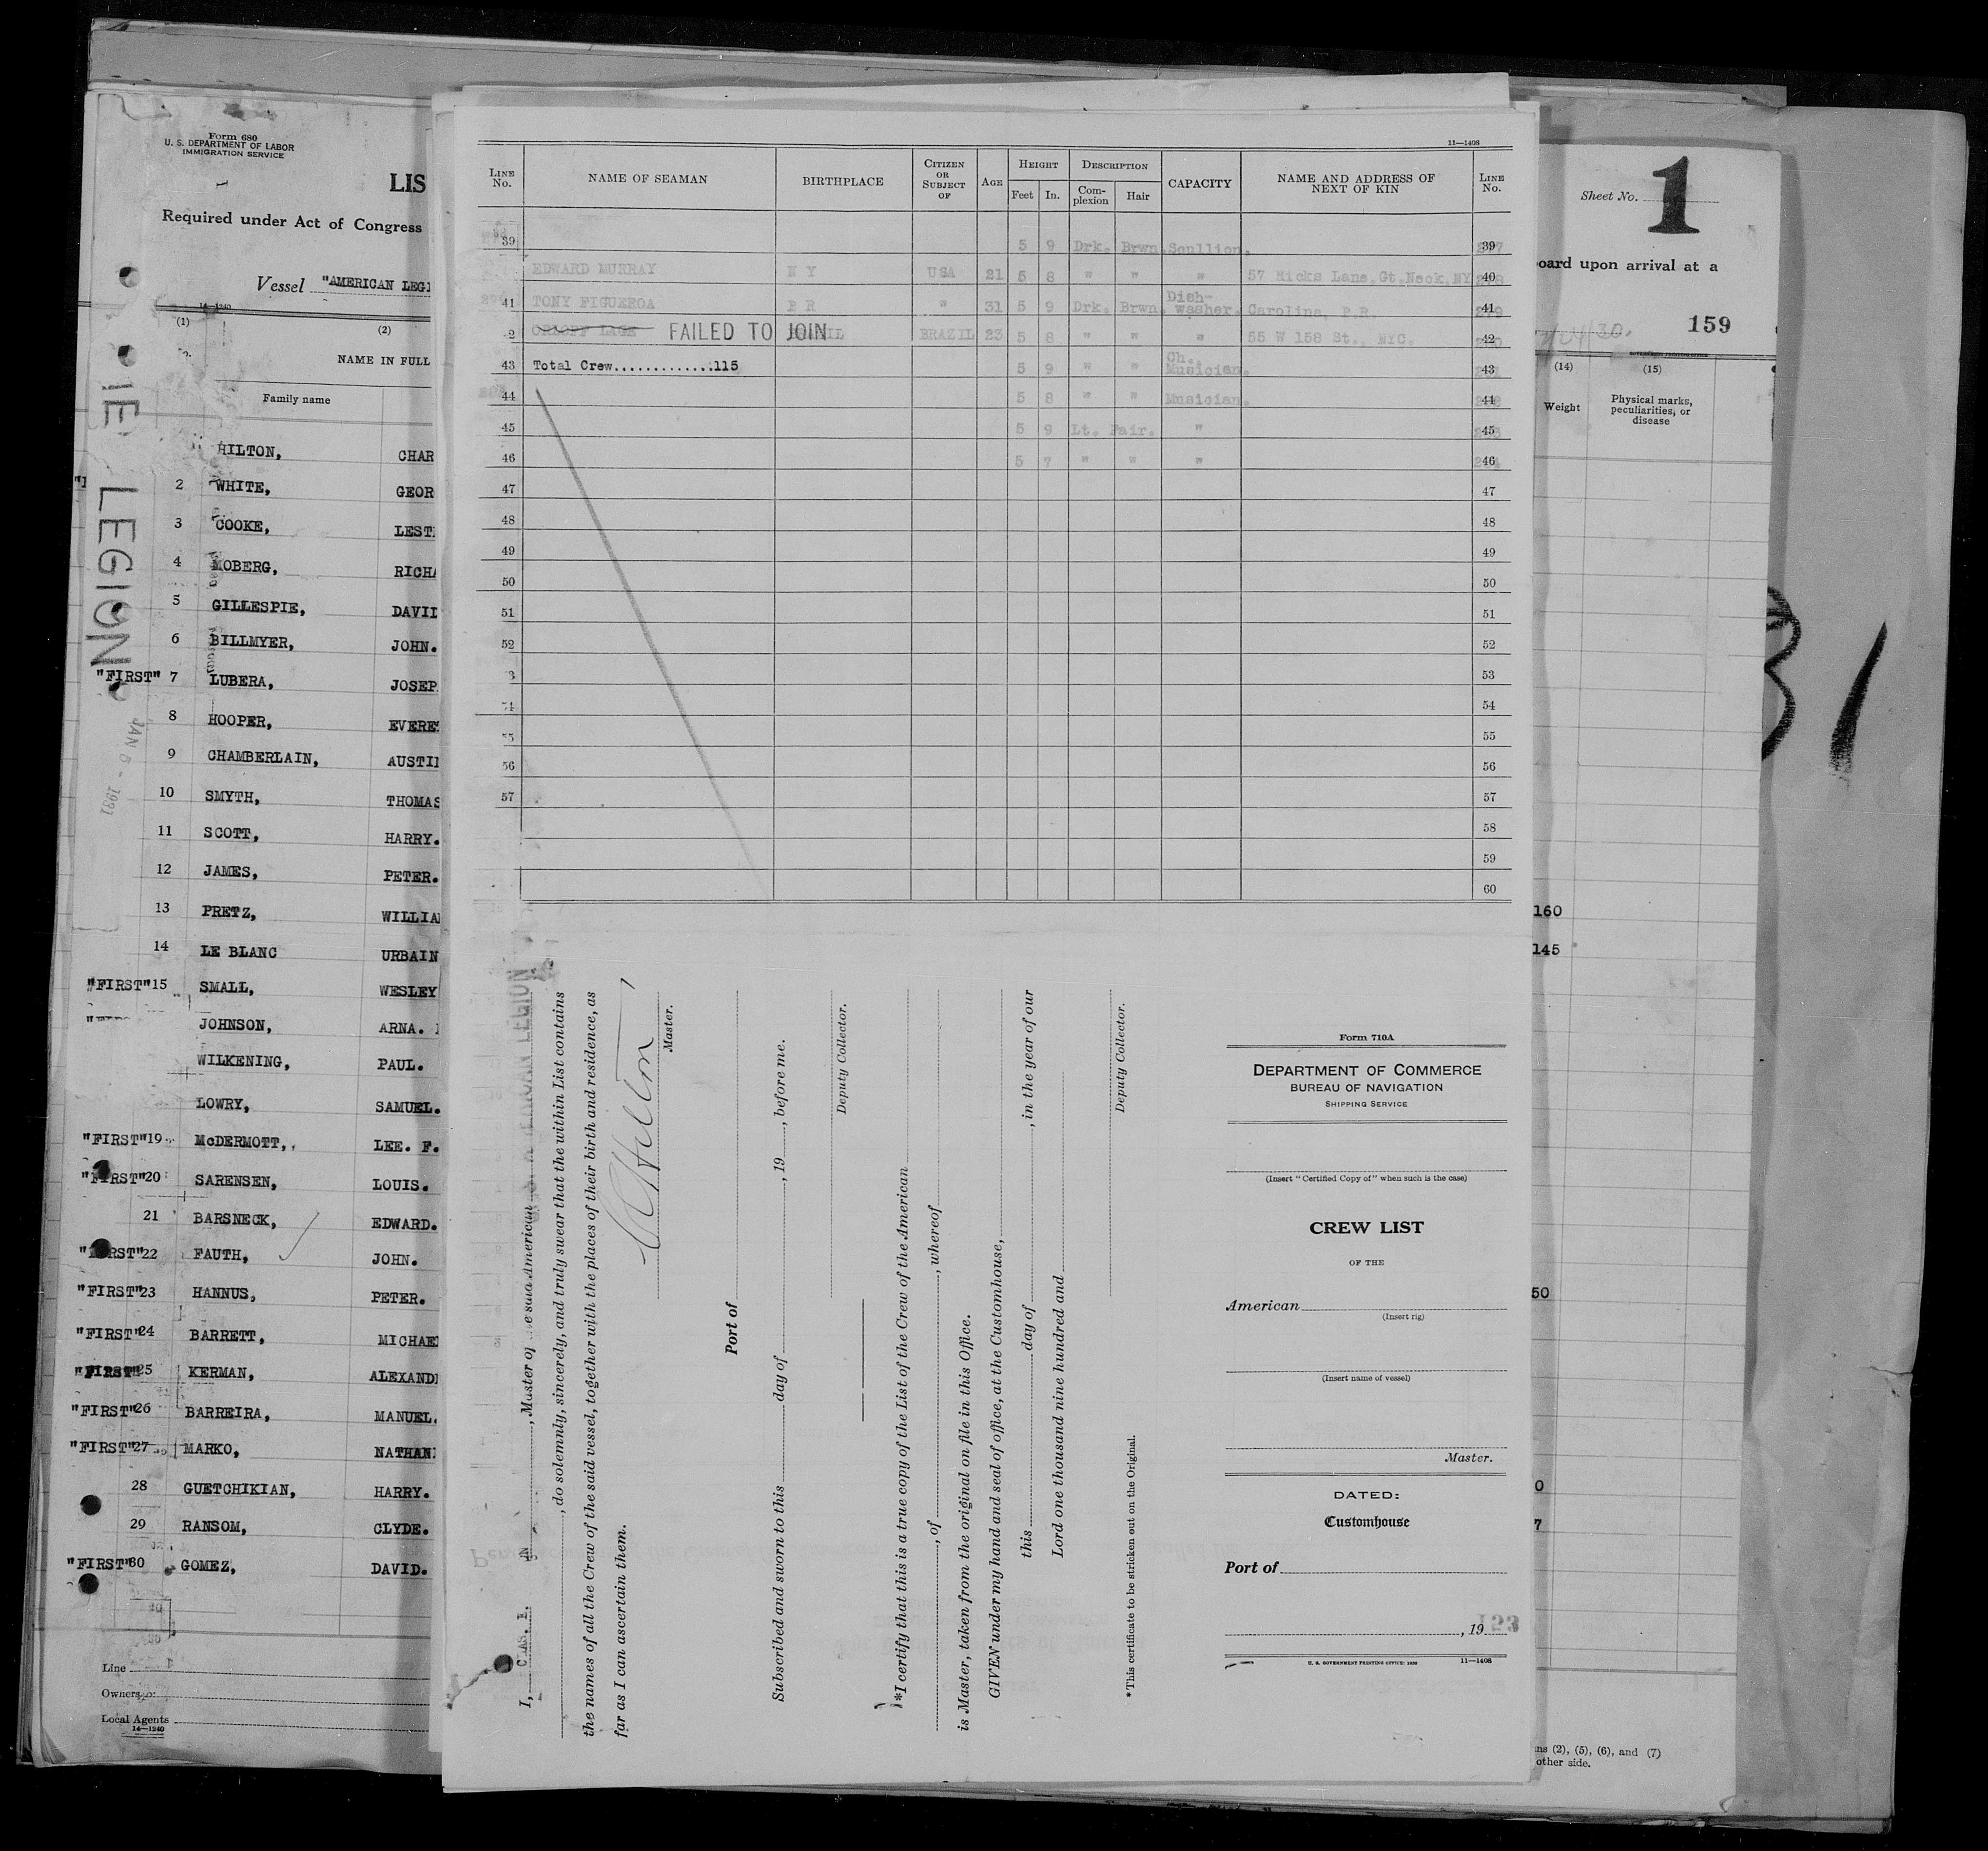 Form 680
U. S. DEPARTMENT OF LABOR
IMMIGRATION SERVICE
LIS
Required under Act of Congress
Vessel "AMERICAN LEGI
14—1240
(1) (2)
NAME IN FULL
Family name
HILTON, CHAR
2 WHITE, GEOR
3 COOKE, LEST
4 MOBERG, RICHA
5 GILLESPIE, DAVID
6 BILLMYER, JOHN.
"FIRST" 7 LUBERA, JOSEP
8 HOOPER, EVERE
9 CHAMBERLAIN, AUSTI
10 SMYTH, THOMAS
11 SCOTT, HARRY.
12 JAMES, PETER.
13 PRETZ, WILLIA
14 LE BLANC URBAIN
"FIRST" 15 SMALL, WESLEY
JOHNSON, ARNA.
WILKENING, PAUL.
LOWRY, SAMUEL.
"FIRST" 19 McDERMOTT, LEE. F.
"FIRST" 20 SARENSEN, LOUIS.
21 BARSNECK, EDWARD.
"FIRST" 22 FAUTH, JOHN.
"FIRST" 23 HANNUS, PETER.
"FIRST" 24 BARRETT, MICHAE
"FIRST" 25 KERMAN, ALEXAND
"FIRST" 26 BARREIRA, MANUEL.
"FIRST" 27 MARKO, NATHAN
28 GUETCHIKIAN, HARRY.
29 RANSOM, CLYDE.
"FIRST" 30 GOMEZ, DAVID.
Line
Owners
Local Agents
14—1240
LEGION
JAN 5 - 1931
11—1408
LINE No. NAME OF SEAMAN BIRTHPLACE CITIZEN OR SUBJECT OF AGE HEIGHT Feet In. DESCRIPTION Complexion Hair CAPACITY NAME AND ADDRESS OF NEXT OF KIN LINE No.
39 5 9 Drk. Brwn. Scullion. 39
EDWARD MURRAY N Y USA 21 5 8 " " " 57 Hicks Lane, Gt. Neck, NY 40
41 TONY FIGUEROA P R " 31 5 9 Drk. Brwn. Dish-washer. Carolina, P.R. 41
2 LAGE FAILED TO JOIN BRAZIL 23 5 8 " " " 55 W 158 St., NYC. 42
43 Total Crew.............115 5 9 " " Ch. Musician. 43
44 5 8 " " Musician. 44
45 5 9 Lt. Fair. " 45
46 5 7 " " " 46
47 47
48 48
49 49
50 50
51 51
52 52
3 53
54 54
55 55
56 56
57 57
58
59
60
I, Chas. , Master of the said American
, do solemnly, sincerely, and truly swear that the within List contains
the names of all the Crew of the said vessel, together with the places of their birth and residence, as
far as I can ascertain them.
Hilton
Master.
Port of
Subscribed and sworn to this day of , 19 , before me.
Deputy Collector.
*I certify that this is a true copy of the List of the Crew of the American
, of , whereof
is Master, taken from the original on file in this Office.
GIVEN under my hand and seal of office, at the Customhouse,
this day of , in the year of our
Lord one thousand nine hundred and
Deputy Collector.
*This certificate to be stricken out on the Original.
Form 710A
DEPARTMENT OF COMMERCE
BUREAU OF NAVIGATION
SHIPPING SERVICE
(Insert "Certified Copy of" when such is the case)
CREW LIST
OF THE
American
(Insert rig)
(Insert name of vessel)
Master.
DATED:
Customhouse
Port of
, 19
153
U. S. GOVERNMENT PRINTING OFFICE: 1930 11—1408
Sheet No. 1
oard upon arrival at a
30.
159
GOVERNMENT PRINTING OFFICE
(14) (15)
Weight Physical marks, peculiarities, or disease
160
145
50
0
7
ns (2), (5), (6), and (7)
other side.
31